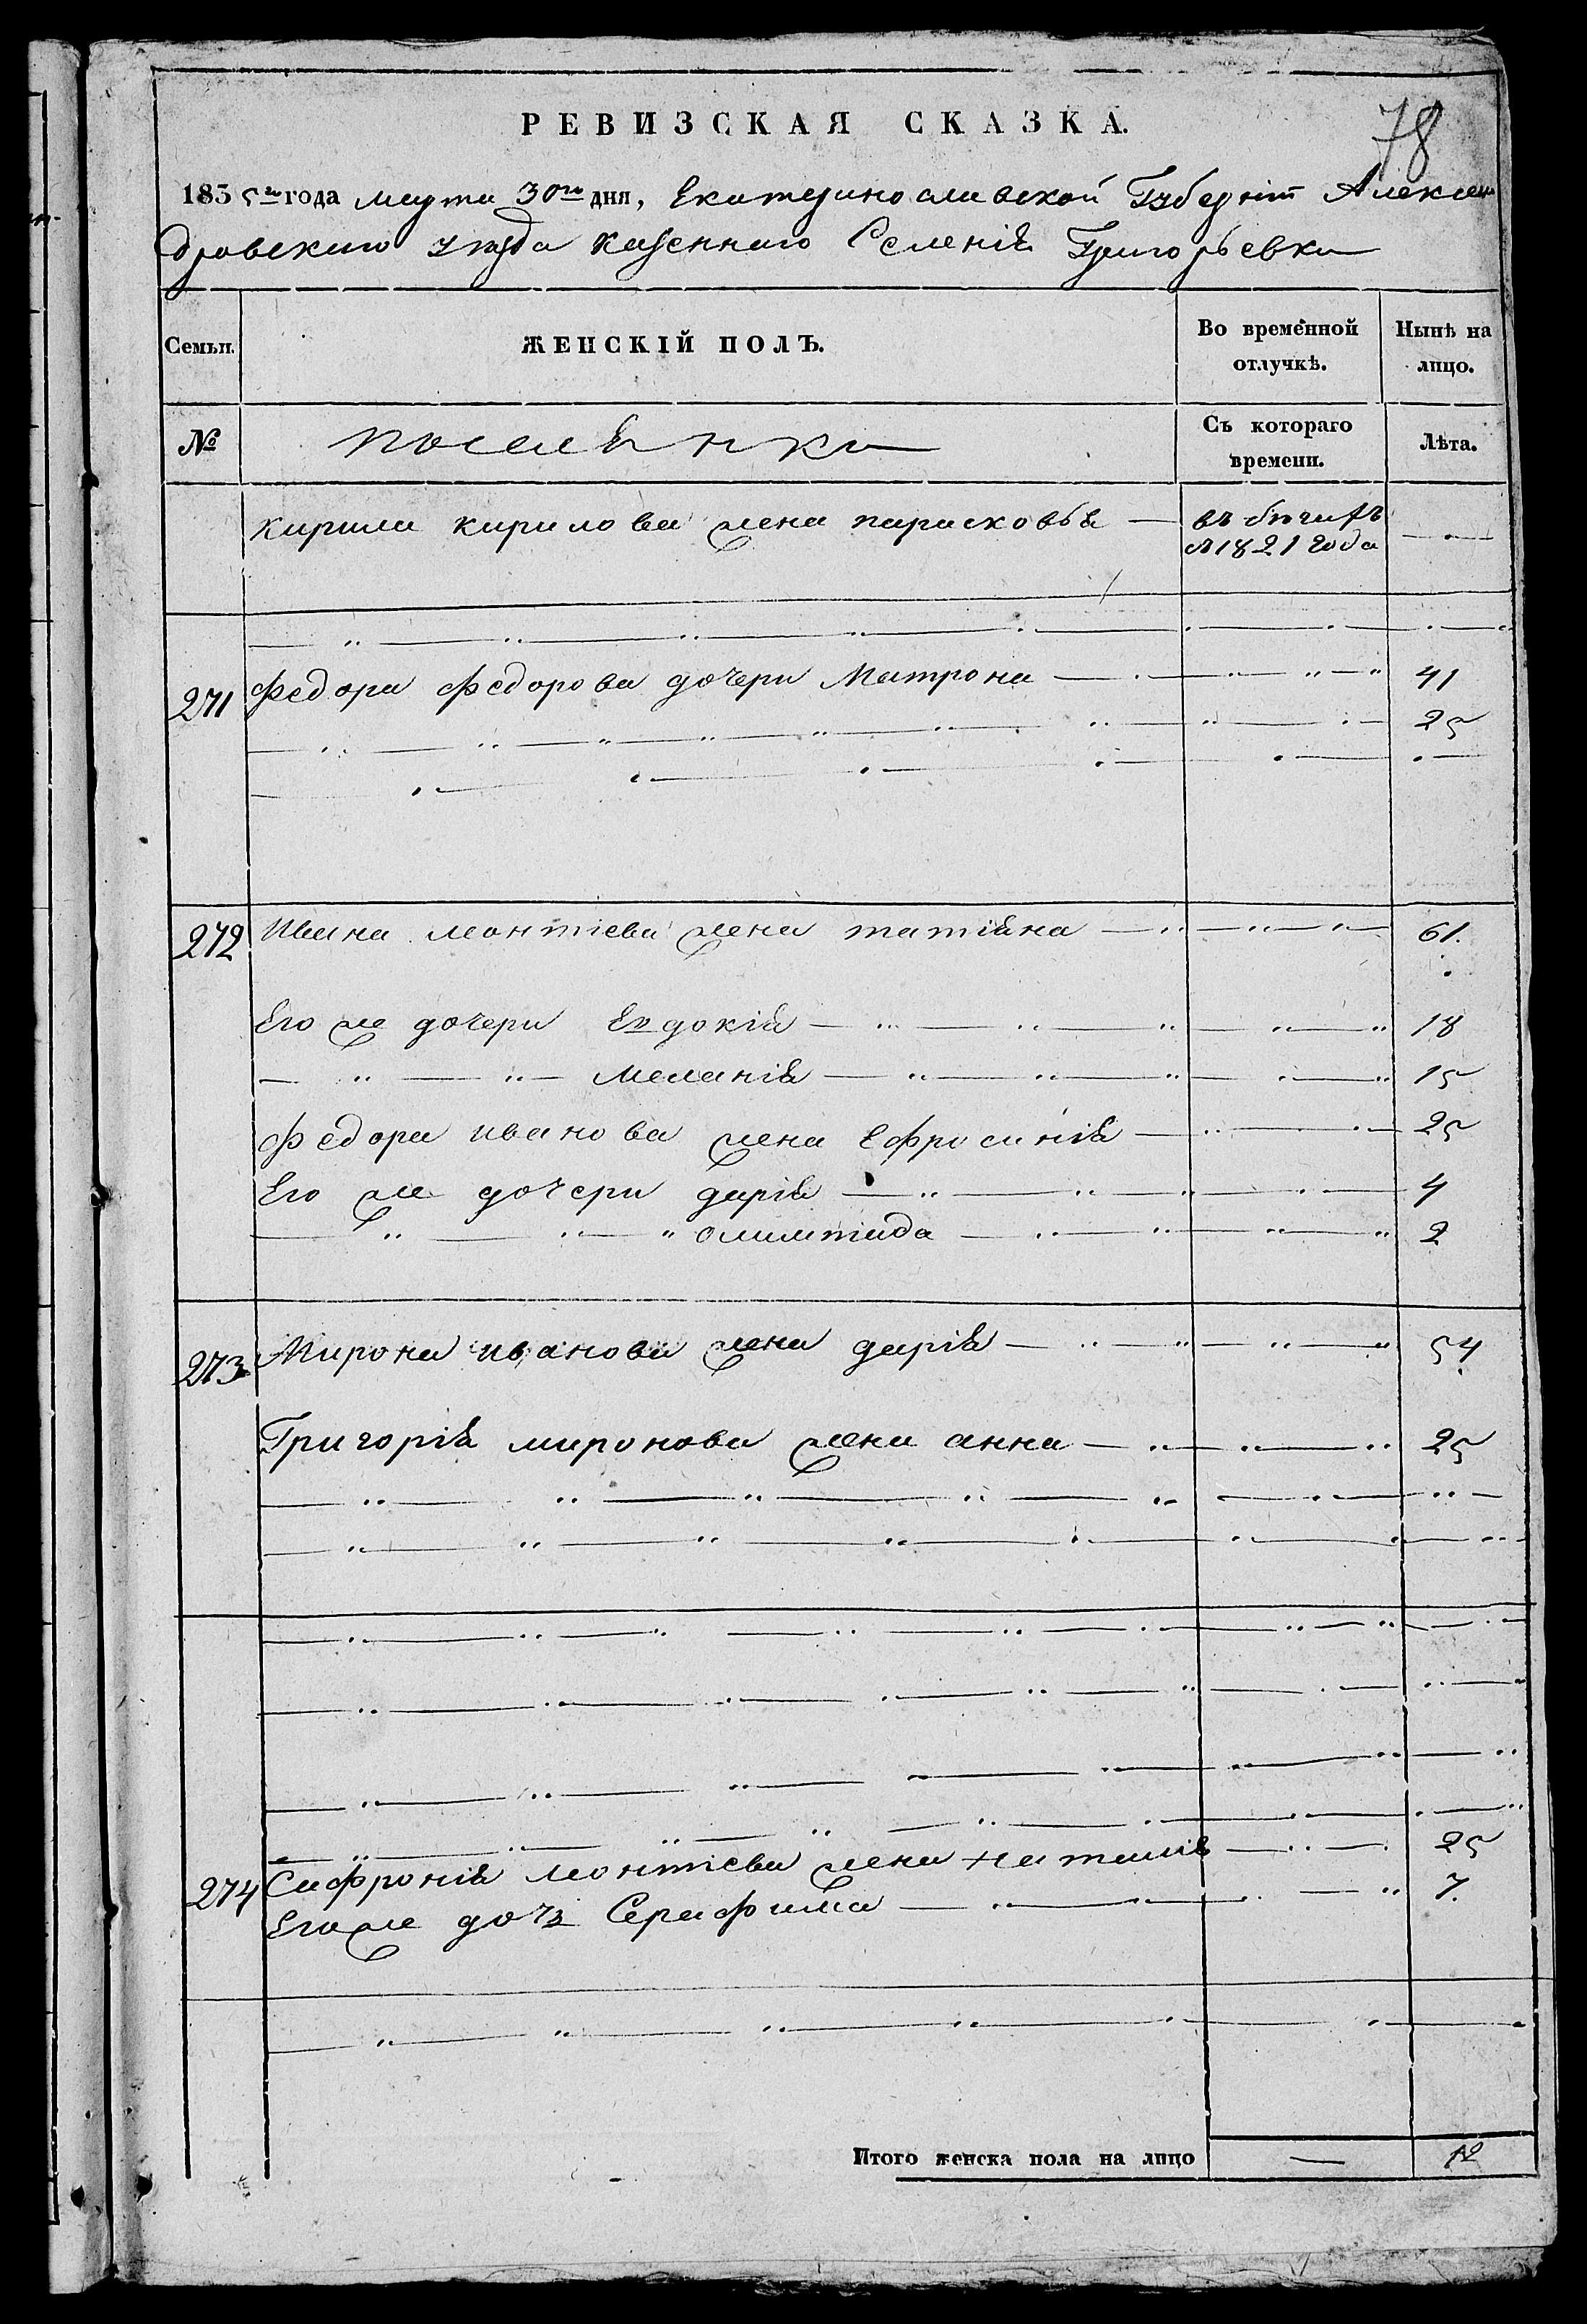 РЕВИЗСКАЯ СКАЗКА.
78
1835го года марта 30го дня, Екатеринославской Губерніи Алексан
дровскаго уѣзда казеннаго Селенія Григорьевки
Семьи.
ЖЕНСКІЙ ПОЛЪ.
Во временной отлучкѣ.
Нынѣ на лицо.
№
поселянки
Съ котораго времени.
Лѣта.
Кирила кирилова жена парасковья — въ бѣгахъ
с 1821 года
271 Федора Федорова дочери Матрона 41
25
272 Ивана леонтіева жена татіяна 61.
Его же дочери Евдокія 18
Меланія 15
Федора иванова жена Ефросинія 25
Его же дочери дарія 4
олимпіада 2
273 Мирона иванова жена дарія 54
Григорія миронова жена анна 25
274 Сафронія леонтіева жена наталія 25
Егоже дочь Серафима 7.
Итого женска пола на лицо — 12